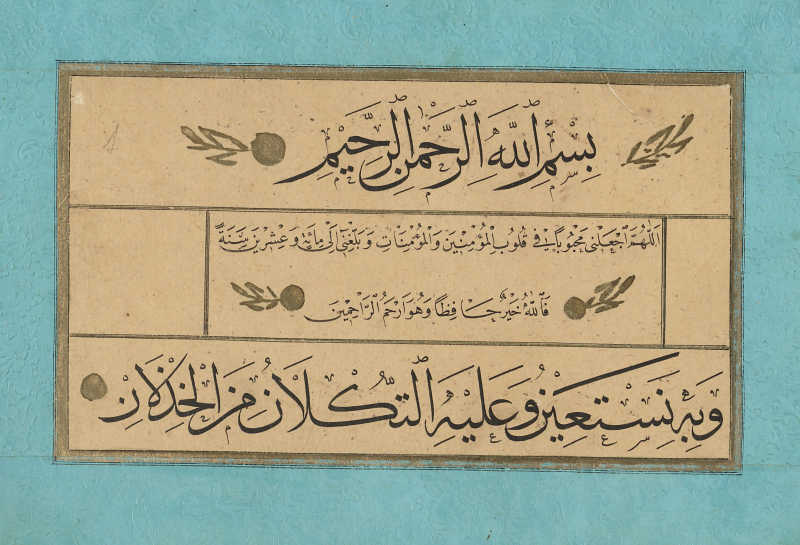 بِسْمِ اللّٰهِ الرَّحْمٰنِ الرَّحِيْمِ
اَللّٰهُمَّ اجْعَلْنِى مَحْبُوبًا فِى قُلُوبِ الْمُؤْمِنِيْنَ وَالْمُؤْمِنَاتِ وَبَلِّغْنِى اِلٰى مِائَةٍ وَعِشْرِيْنَ سَنَةً
فَاللّٰهُ خَيْرٌ حَافِظًا وَهُوَ اَرْحَمُ الرَّاحِمِيْنَ
وَبِهِ نَسْتَعِيْنُ وَعَلَيْهِ التُّكْلَانُ مِنَ الْخِذْلَانِ